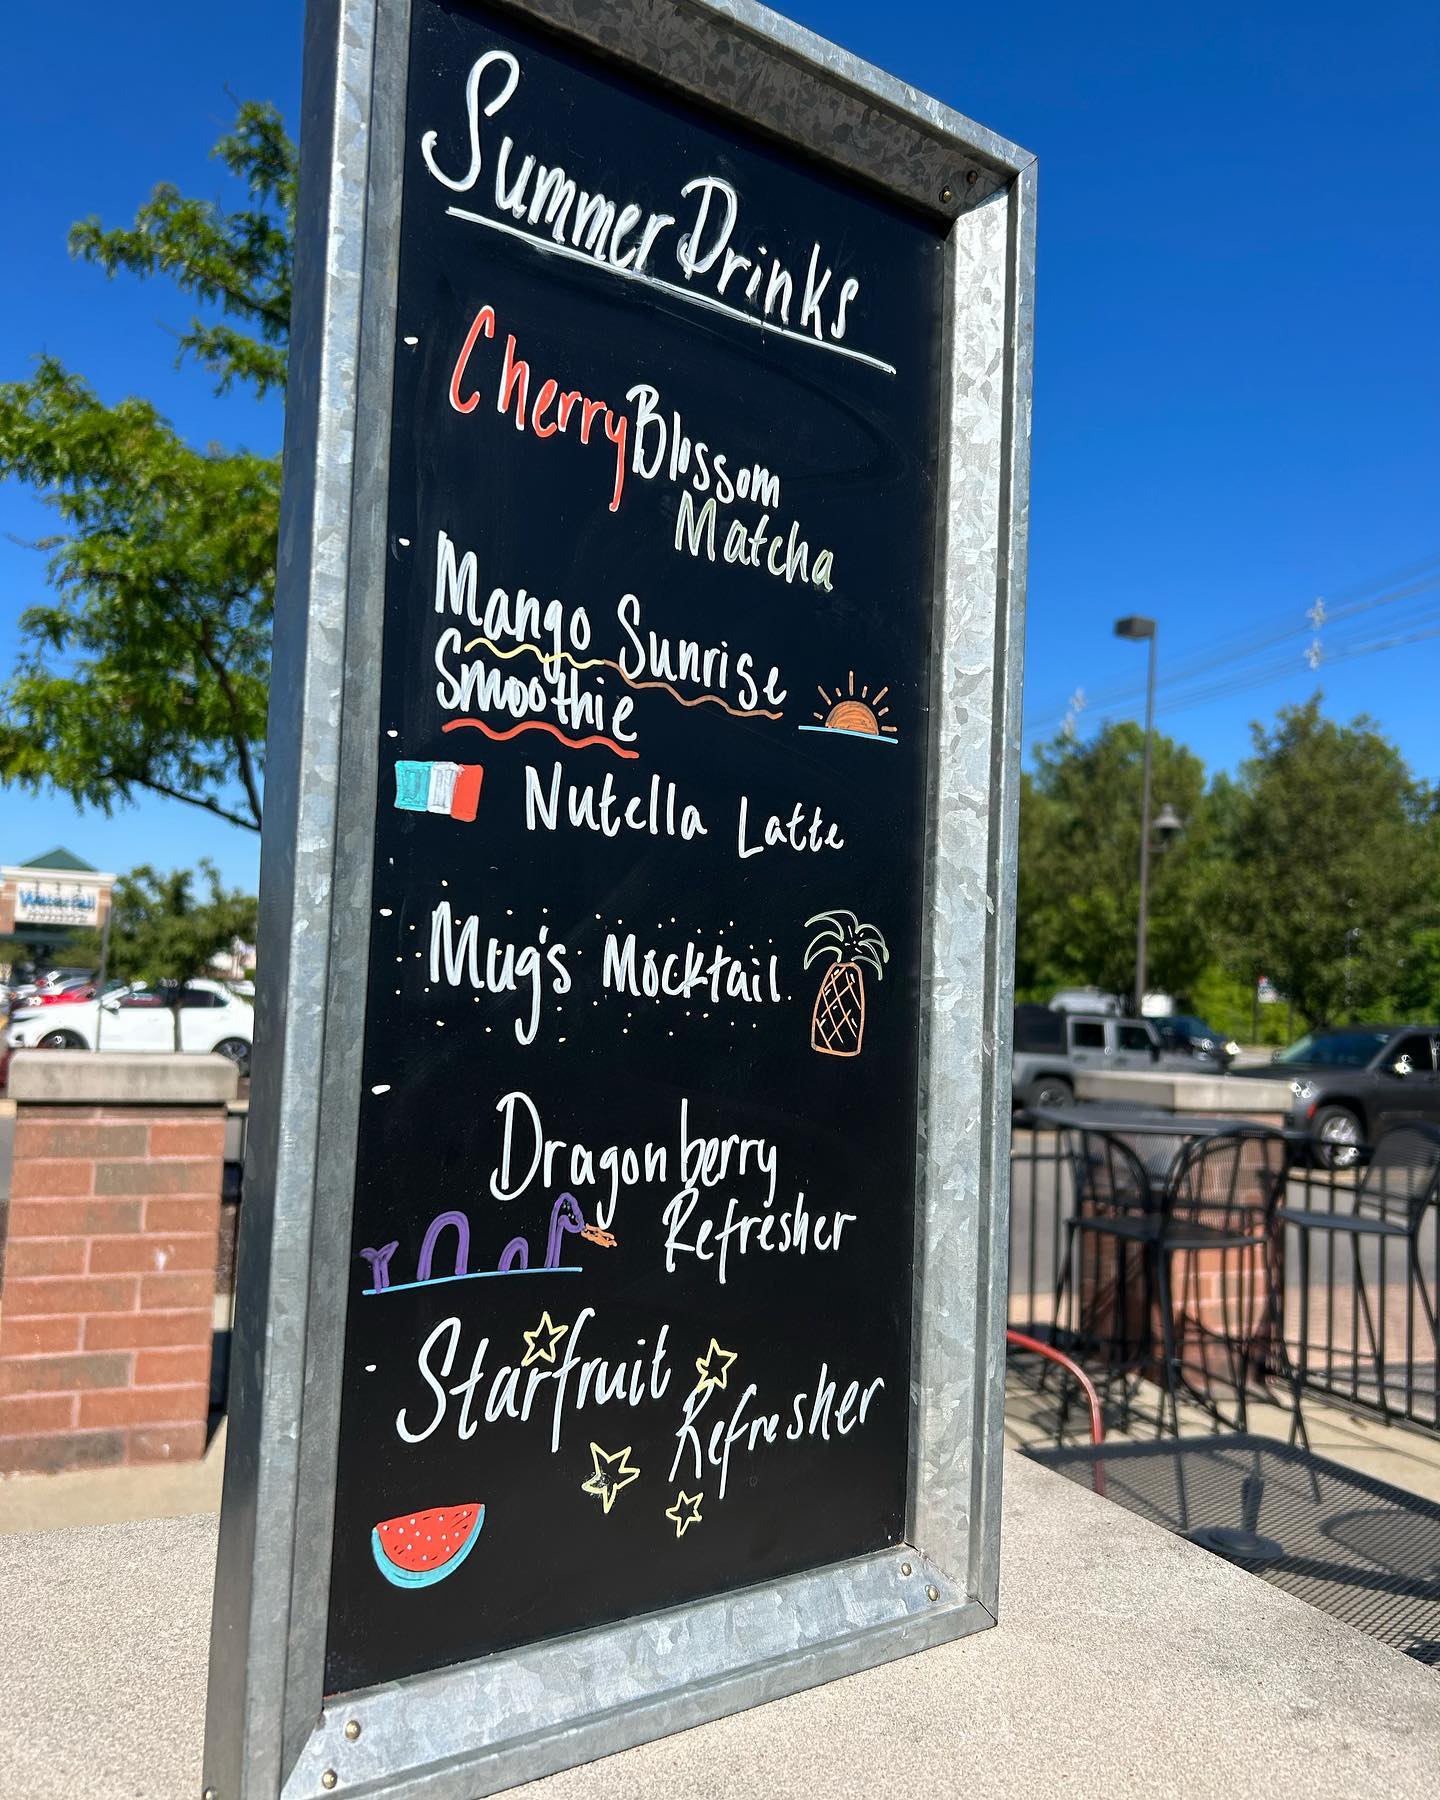 Summer Drinks
Cherry Blossom
Matcha
Mango Sunrise
Smoothie
Nutella Latte
Mug's Mocktail
Dragonberry
Refresher
Starfruit
Refresher
Waterfall